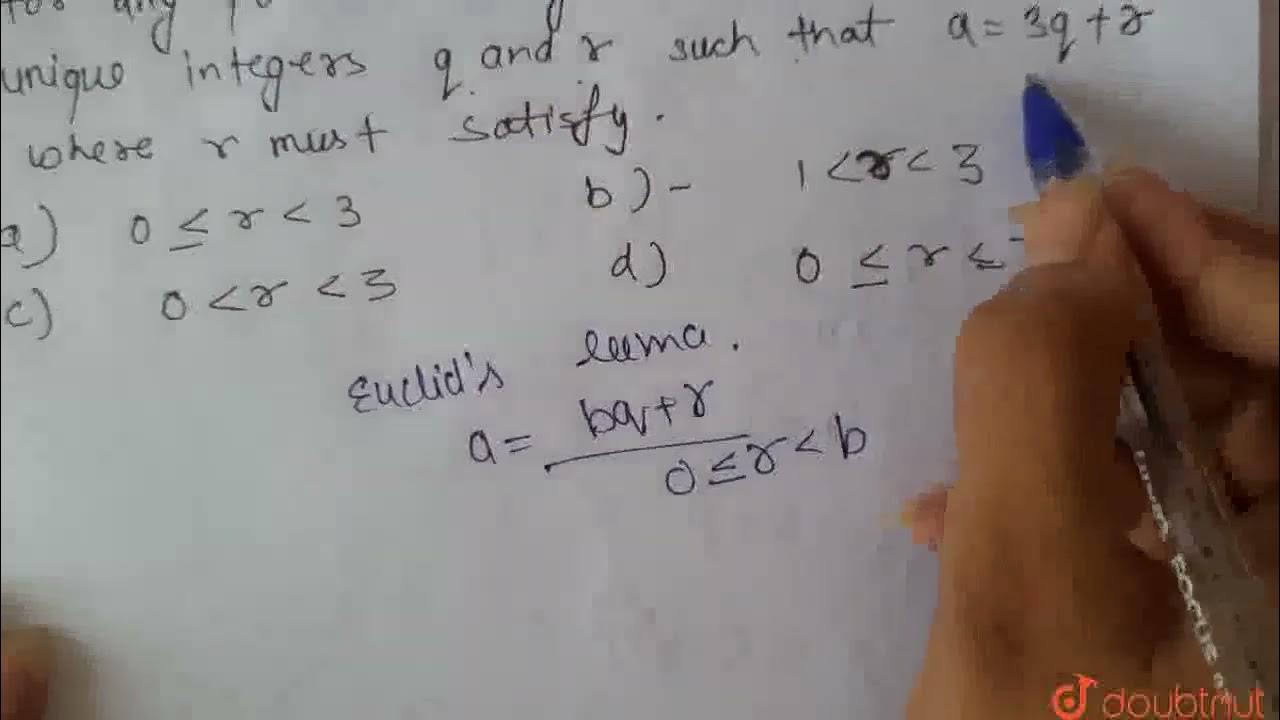 for any
unique integers q and r such that a = 3q + r
where r must satisfy.
a) 0 ≤ r < 3 b) - 1 < r < 3
c) 0 < r < 3 d) 0 ≤ r ≤
Euclid's leema.
a = bq + r
0 ≤ r < b
doubtnut